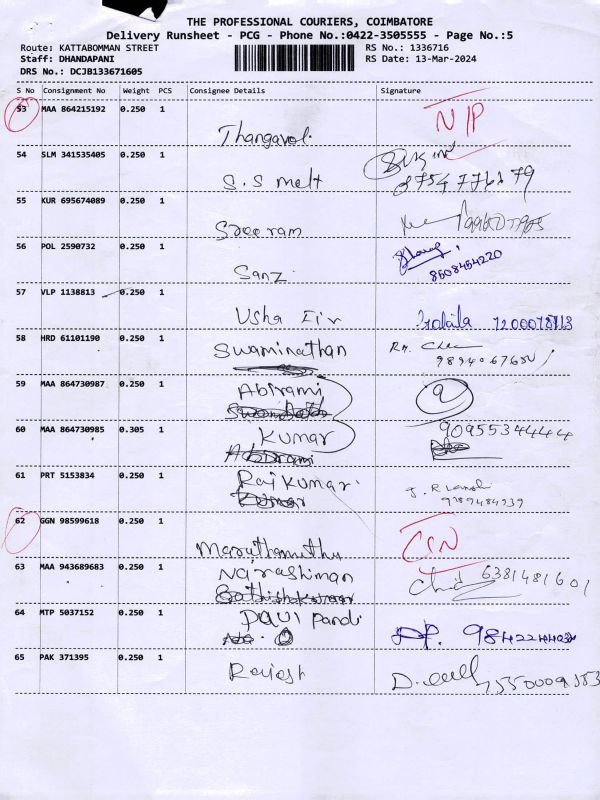 THE PROFESSIONAL COURIERS, COIMBATORE
Delivery Runsheet - PCG - Phone No.:0422-3505555 - Page No.:5
Route: KATTABOMMAN STREET RS No.: 1336716
Staff: DHANDAPANI RS Date: 13-Mar-2024
DRS No.: DCJB133671605
S No Consignment No Weight PCS Consignee Details Signature
53 MAA 864215192 0.250 1 Thangavel N/P
54 SLM 341535405 0.250 1 S.S melt
55 KUR 695674089 0.250 1 Sree ram
56 POL 2590732 0.250 1 Sanz 8608454220
57 VLP 1138813 0.250 1 Usha
58 HRD 61101190 0.250 1 Swaminathan
59 MAA 864730987 0.250 1 Abirami
60 MAA 864730985 0.305 1 Kumar 9095534444
61 PRT 5153834 0.250 1 Raj Kumar
62 GGN 98599618 0.250 1 Maruthamuthu
63 MAA 943689683 0.250 1 Narashiman 6381481601
64 MTP 5037152 0.250 1 pandi
65 PAK 371395 0.250 1 Rajesh